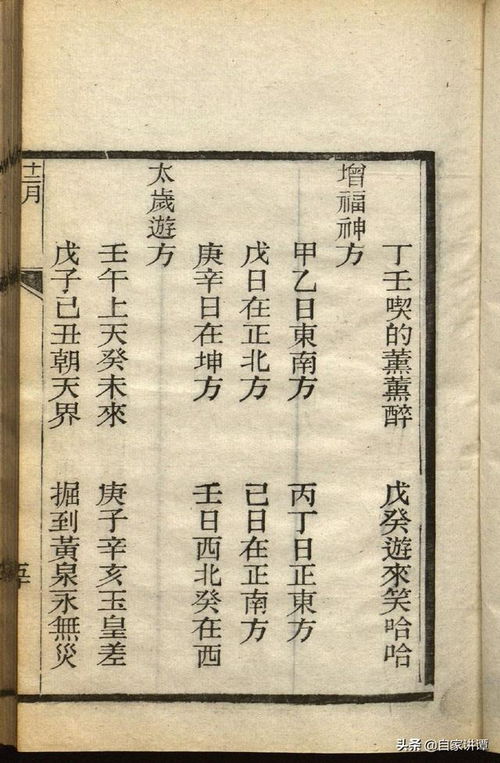 丁壬喫的薰薰醉 戊癸遊來笑哈哈
增福神方
甲乙日東南方 丙丁日正東方
戊日在正北方 己日在正南方
庚辛日在坤方 壬日西北癸在西
太歲遊方
壬午上天癸未來 庚子辛亥玉皇差
戊子己丑朝天界 掘到黃泉永無災
十二月
头条 @自家讲谭